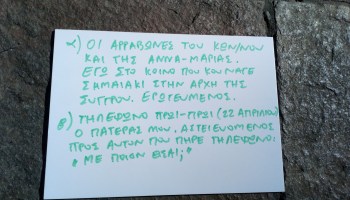 α) ΟΙ ΑΡΡΑΒΩΝΕΣ ΤΟΥ ΚΩΝ/ΝΟΥ
ΚΑΙ ΤΗΣ ΑΝΝΑ-ΜΑΡΙΑΣ.
ΕΓΩ ΣΤΟ ΚΟΙΝΟ ΠΟΥ ΚΟΥΝΑΓΕ
ΣΗΜΑΙΑΚΙ ΣΤΗΝ ΑΡΧΗ ΤΗΣ
ΣΥΓΓΡΟΥ. ΕΡΩΤΕΥΜΕΝΟΣ.
β) ΤΗΛΕΦΩΝΟ ΠΡΩΙ-ΠΡΩΙ (22 ΑΠΡΙΛΙΟΥ)
Ο ΠΑΤΕΡΑΣ ΜΟΥ, ΑΣΤΕΙΕΥΟΜΕΝΟΣ
ΠΡΟΣ ΑΥΤΟΝ ΠΟΥ ΠΗΡΕ ΤΗΛΕΦΩΝΟ:
"ΜΕ ΠΟΙΟΝ ΕΙΣΑΙ;"